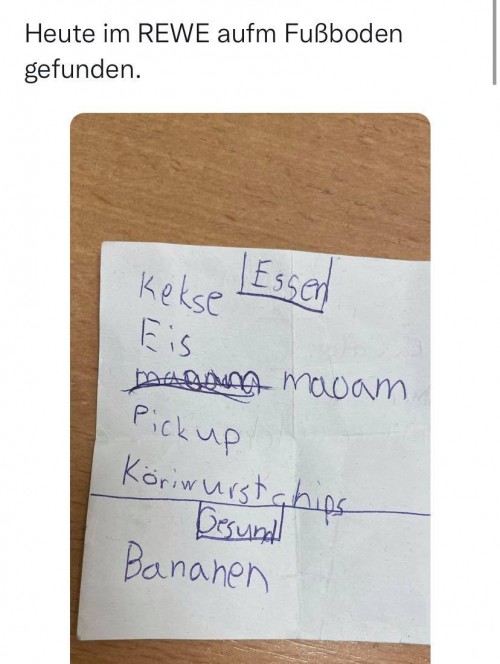 Heute im REWE aufm Fußboden
gefunden.
Essen
Kekse
Eis
maoam
Pickup
Köriwurstchips
Gesund
Bananen